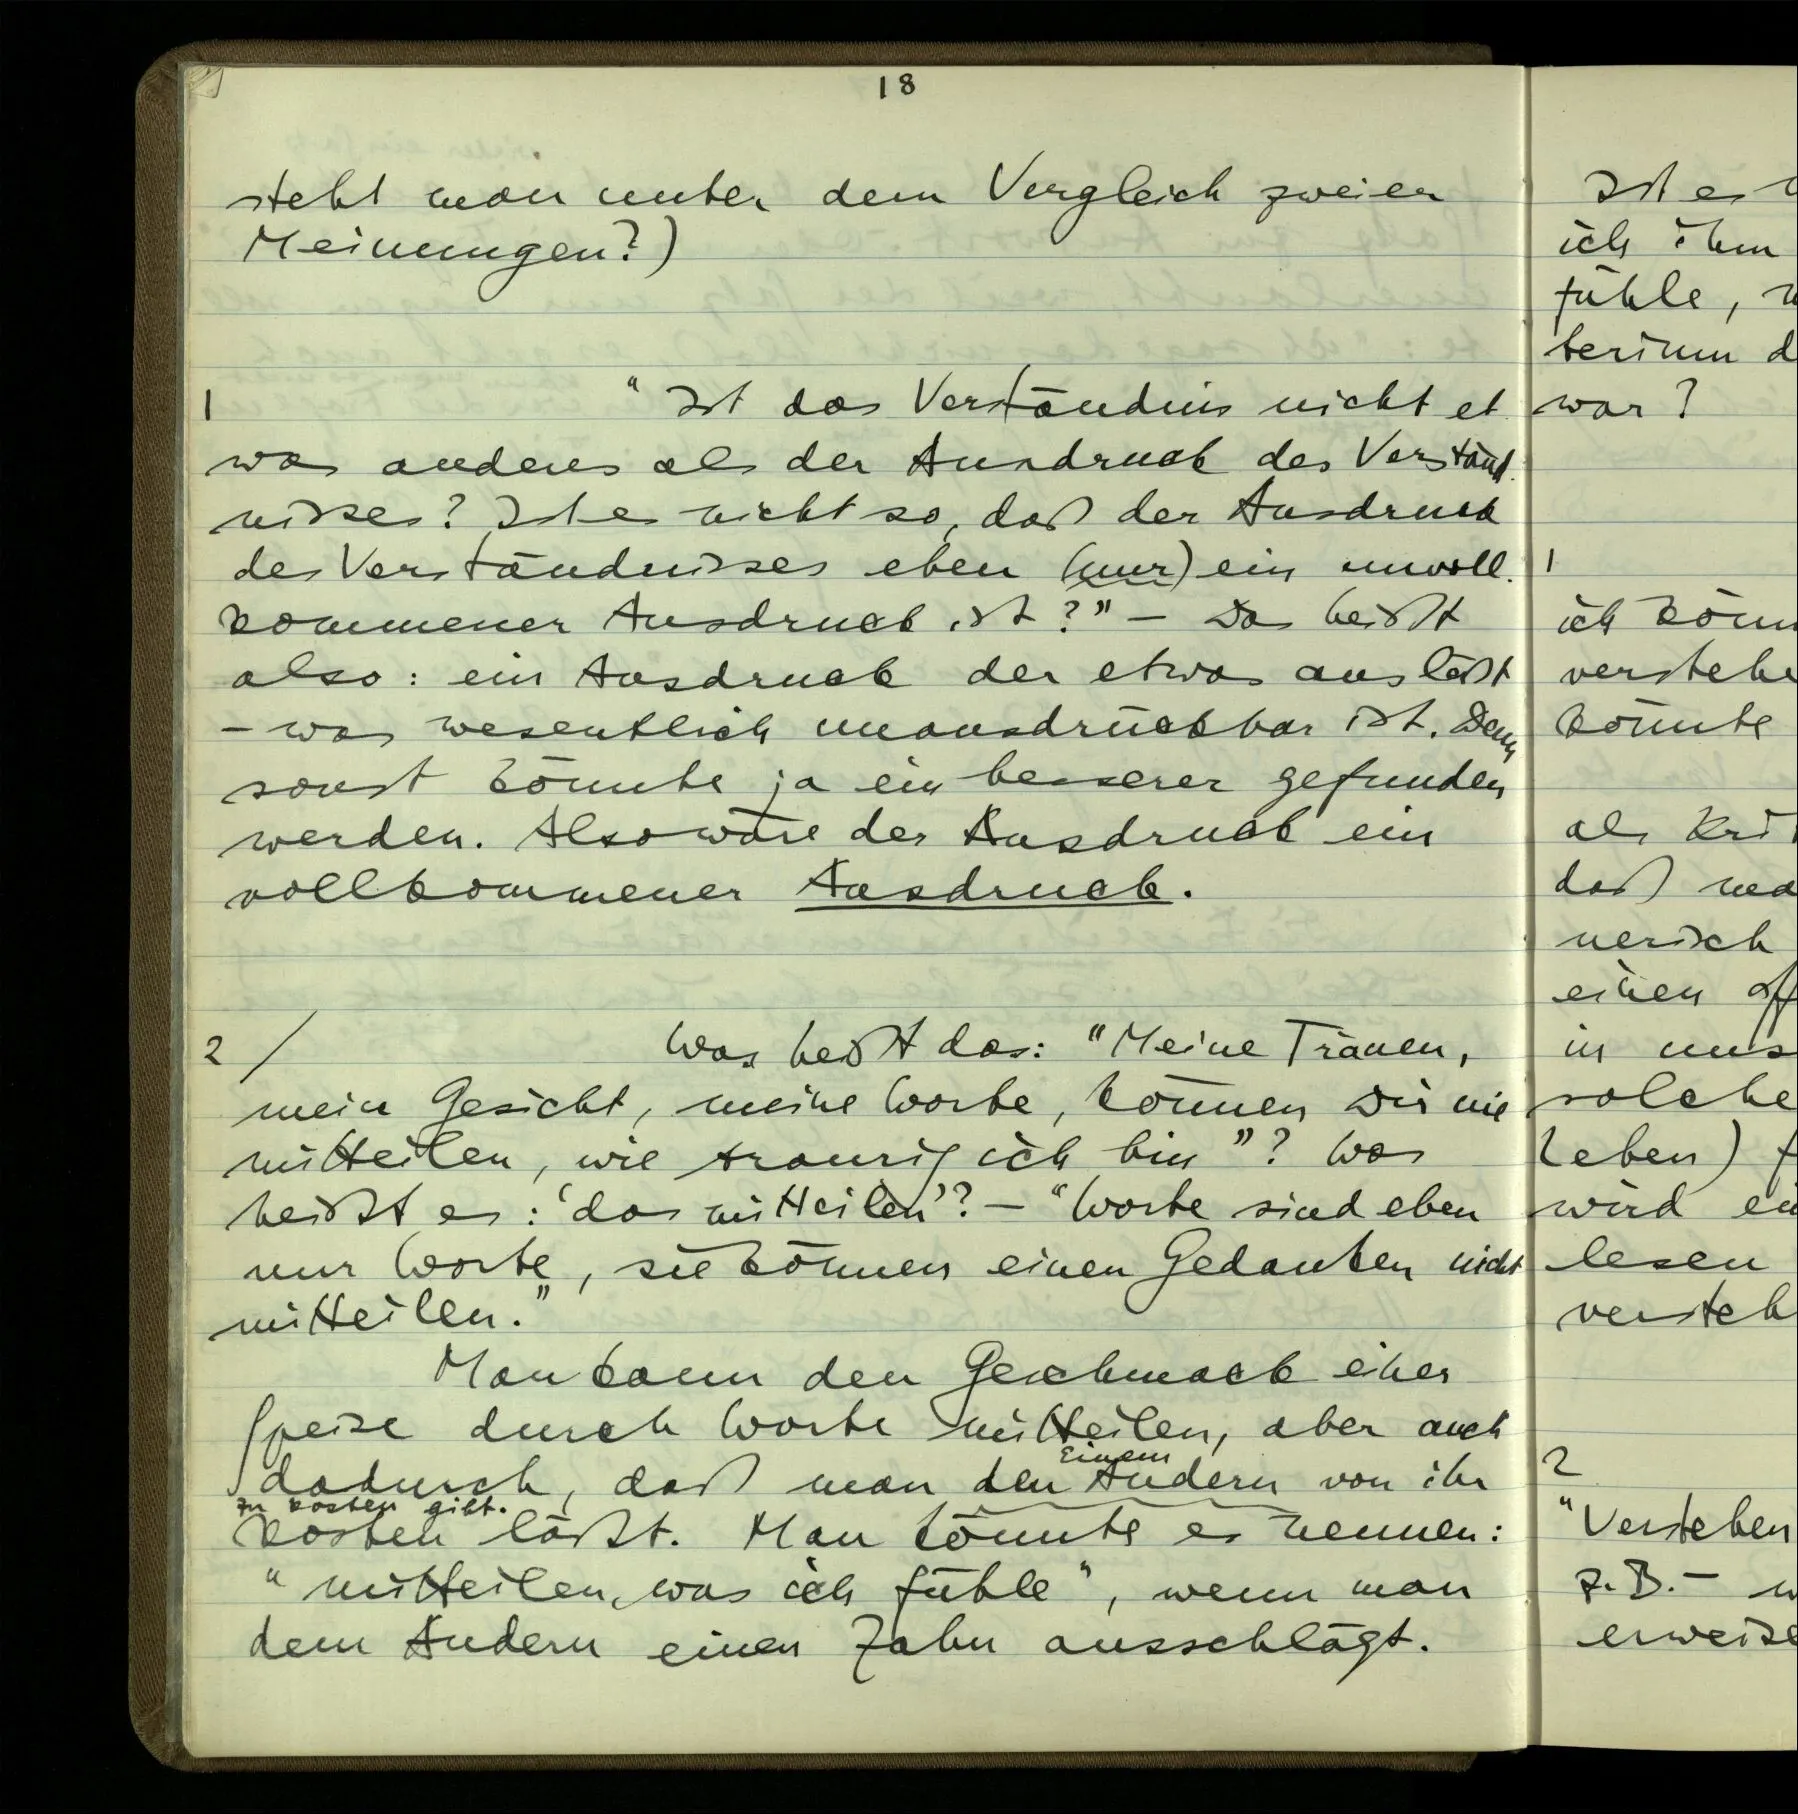 18
steht man unter dem Vergleich zweier
Meinungen?)
1 "Ist das Verständnis nicht et
was anderes als der Ausdruck des Verständ-
nisses? Ist es nicht so, daß der Ausdruck
des Verständnisses eben (nur) ein unvoll-
kommener Ausdruck ist?" – Das heißt
also: ein Ausdruck der etwas ausläßt
– was wesentlich unausdrückbar ist. Denn
sonst könnte ja ein besserer gefunden
werden. Also wäre der Ausdruck ein
vollkommener Ausdruck.
2 / Was heißt das: "Meine Tränen,
mein Gesicht, meine Worte, können Dir nie
mitteilen, wie traurig ich bin"? Was
heißt es: 'das mitteilen'? – "Worte sind eben
nur Worte, sie können einen Gedanken nicht
mitteilen."
Man kann den Geschmack einer
Speise durch Worte mitteilen, aber auch
Einem
dadurch, daß man den Andern von ihr
zu kosten gibt.
kosten läßt. Man könnte es nennen:
"mitteilen, was ich fühle", wenn man
dem Andern einen Zahn ausschlägt.
Ist es
ich ihm
fühle,
terium d
war?
1
ich könn
verstehe
könnte
als Kri
daß ma
nerisch
einen
in uns
solche
Leben)
wird ei
lesen
versteh
2
"Verstehen
z.B. –
erweise